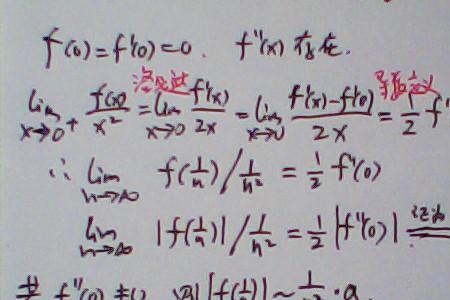 f(0)=f'(0)=0. f''(x) 存在.
洛必达 导数定义
lim x→0+ f(x)/x² = lim x→0 f'(x)/2x = lim x→0 (f'(x)-f'(0))/2x = 1/2 f'
∴ lim n→∞ f(1/n)/ 1/n² = 1/2 f''(0)
lim n→∞ |f(1/n)|/ 1/n² = 1/2 |f''(0)| 记为
若 f''(0)≠0 则 |f(1/n)| ~ 1/n² · a